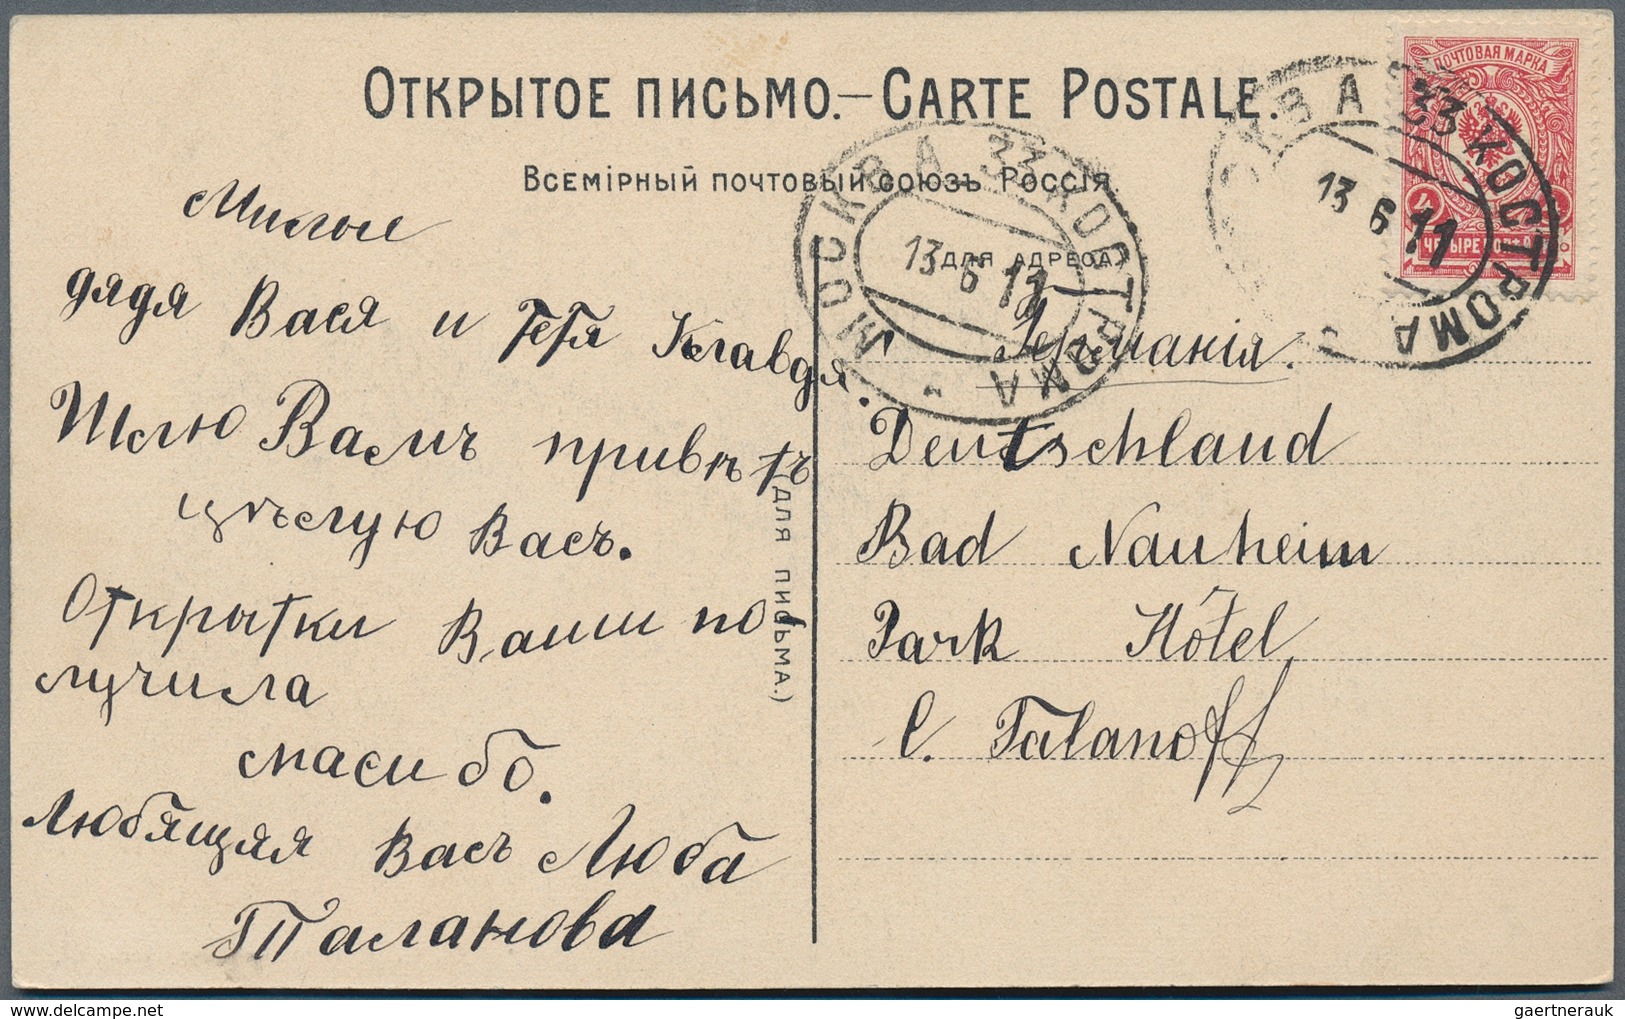 ОТКРЫТОЕ ПИСЬМО.—CARTE POSTALE.
ВСЕМІРНЫЙ ПОЧТОВЫЙ СОЮЗЪ РОССІЯ.
ПОЧТОВАЯ МАРКА
4
МОСКВА 33 КОСТРОМА
13 6 11
МОСКВА 33 КОСТРОМА
13 6 11
(ДЛЯ АДРЕСА)
(ДЛЯ ПИСЬМА.)
Милые
дядя Вася и тетя Клавдя.
Шлю Вамъ привѣтъ
цѣлую Васъ.
Открытки Ваши по
лучила
спасибо.
Любящая Васъ Люба
Таланова
Германія.
Deutschland
Bad Nauheim
Park Hôtel
C. Talanoff
gaertnerauk